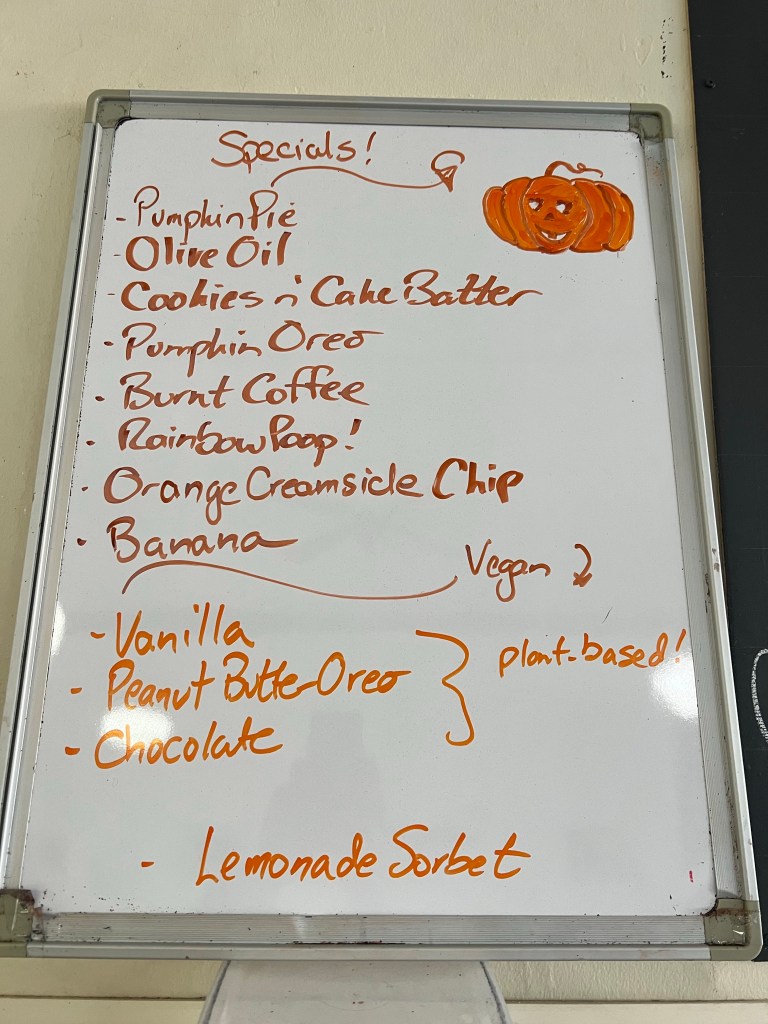 Specials!
- Pumpkin Pie
- Olive Oil
- Cookies n' Cake Batter
- Pumpkin Oreo
- Burnt Coffee
- Rainbow Poop!
- Orange Creamsicle Chip
- Banana
Vegan
- Vanilla
- Peanut Butter Oreo
- Chocolate
plant-based!
- Lemonade Sorbet